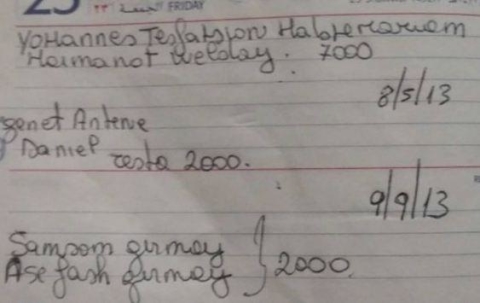 23 ٢٣ FRIDAY
Yohannes Tesfatsion Habtemariam
Haimanot Welday. 7000
8/5/13
genet Antene
Daniel testa 2000.
9/9/13
Samsom girmay
Asefash girmay } 2000.